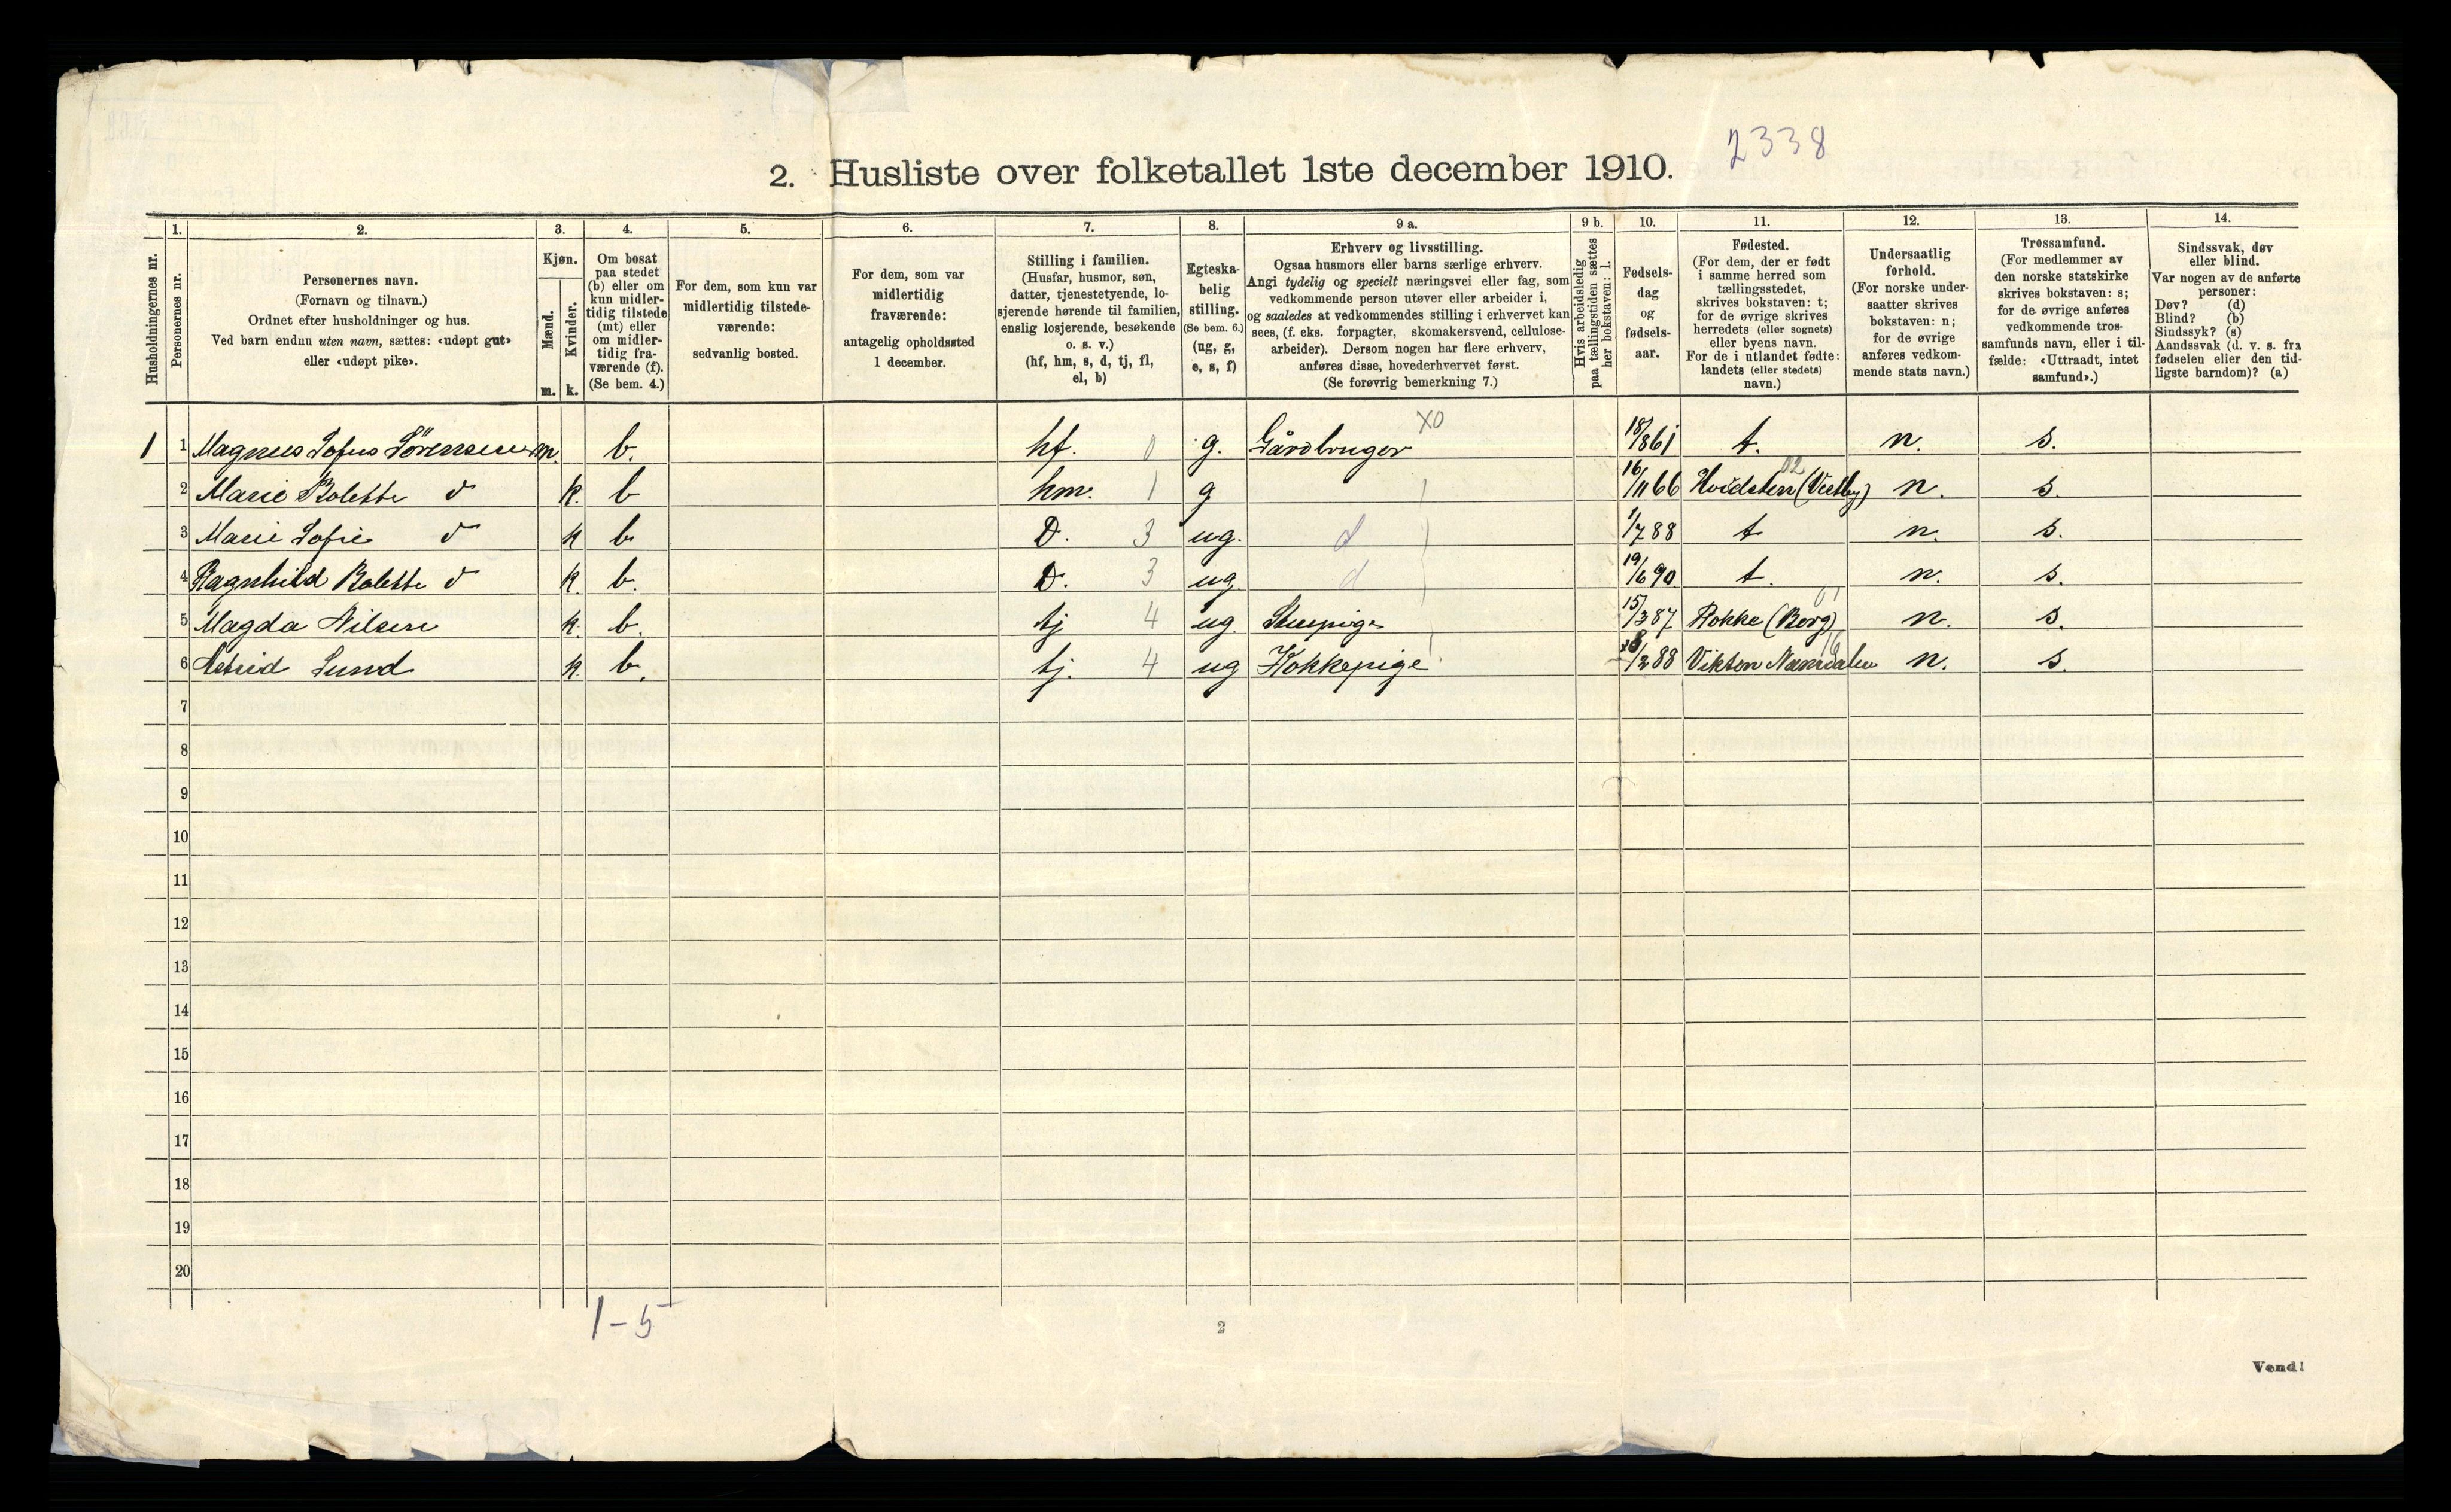 2338
2. Husliste over folketallet 1ste december 1910.
Husholdningernes nr.
1.
Personernes nr.
2.
Personernes navn.
(Fornavn og tilnavn.)
Ordnet efter husholdninger og hus.
Ved barn endnu uten navn, sættes: «udøpt gut»
eller «udøpt pike».
3.
Kjøn.
Mænd.
m.
Kvinder.
k.
4.
Om bosat
paa stedet
(b) eller om
kun midler-
tidig tilstede
(mt) eller
om midler-
tidig fra-
værende (f).
(Se bem. 4.)
5.
For dem, som kun var
midlertidig tilstede-
værende:
sedvanlig bosted.
6.
For dem, som var
midlertidig
fraværende:
antagelig opholdssted
1 december.
7.
Stilling i familien.
(Husfar, husmor, søn,
datter, tjenestetyende, lo-
sjerende hørende til familien,
enslig losjerende, besøkende
o. s. v.)
(hf, hm, s, d, tj, fl,
el, b)
8.
Egteska-
belig
stilling.
(Se bem. 6.)
(ug, g,
e, s, f)
9 a.
Erhverv og livsstilling.
Ogsaa husmors eller barns særlige erhverv.
Angi tydelig og specielt næringsvei eller fag, som
vedkommende person utøver eller arbeider i,
og saaledes at vedkommendes stilling i erhvervet kan
sees, (f. eks. forpagter, skomakersvend, cellulose-
arbeider). Dersom nogen har flere erhverv,
anføres disse, hovederhvervet først.
(Se forøvrig bemerkning 7.)
9 b.
Hvis arbeidsledig
paa tællingstiden sættes
her bokstaven: l.
10.
Fødsels-
dag
og
fødsels-
aar.
11.
Fødested.
(For dem, der er født
i samme herred som
tællingsstedet,
skrives bokstaven: t;
for de øvrige skrives
herredets (eller sognets)
eller byens navn.
For de i utlandet fødte:
landets (eller stedets)
navn.)
12.
Undersaatlig
forhold.
(For norske under-
saatter skrives
bokstaven: n;
for de øvrige
anføres vedkom-
mende stats navn.)
13.
Trossamfund.
(For medlemmer av
den norske statskirke
skrives bokstaven: s;
for de øvrige anføres
vedkommende tros-
samfunds navn, eller i til-
fælde: «Uttraadt, intet
samfund».)
14.
Sindssvak, døv
eller blind.
Var nogen av de anførte
personer:
Døv? (d)
Blind? (b)
Sindssyk? (s)
Aandssvak (d. v. s. fra
fødselen eller den tid-
ligste barndom)? (a)
1 1 Magnus Sofus Sörensen m. b. hf. 0 g. Gårdbruger X0 18/8 61 t. n. s.
2 Marie Bolette d k. b hm. 1 g 16/11 66 Hvidsten (Vestby) 02 n. s.
3 Marie Sofie d k b D. 3 ug. d 1/7 88 t n. s.
4 Ragnhild Bolette d k. b. D. 3 ug. d 19/6 90 t. n. s.
5 Magda Nilsen k. b. tj 4 ug. Stuepige 15/3 87 Rokke (Berg) 01 n. s.
6 Astrid Lund k. b. tj. 4 ug Kokkepige /2 88 Vikten Namdalen n. s.
7
8
9
10
11
12
13
14
15
16
17
18
19
20
1-5
2
Vend!